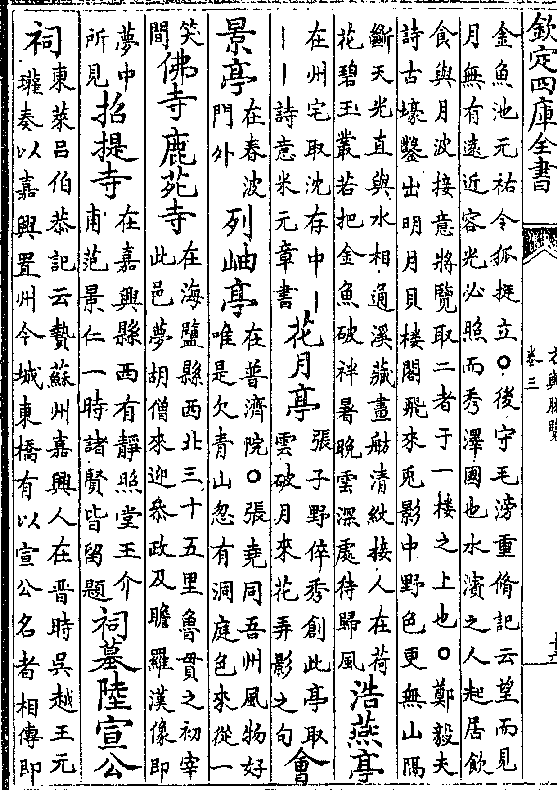 欽定四庫全書
卷三
金魚池元祐令狐挺立○後守毛滂重脩記云望而見
月無有遠近容光必照而秀澤國也水濱之人起居飲
食與月波接意將覽取二者于一樓之上也○鄭毅夫
詩古壕鑿出明月貝樓閣飛來兎影中野色更無山隔
斷天光直與水相通溪藏畫舫清紋接人在荷
花碧玉叢若把金魚破袢暑晚雲深處待歸風
浩燕亭
在州宅取沈存中丨
丨丨詩意米元章書
花月亭
張子野倅秀創此亭取
雲破月來花弄影之句
會
景亭
在春波
門外
列岫亭
在普濟院○張堯同吾州風物好
唯是欠青山忽有洞庭色來從一
笑
間
佛寺鹿苑寺
在海鹽縣西北三十五里魯貫之初宰
此邑夢胡僧來迎叅政及瞻羅漢像即
夢中
所見
招提寺
在嘉興縣西有靜照堂王介
甫范景仁一時諸賢皆留題
祠墓陸宣公
祠
東萊呂伯恭記云贄蘇州嘉興人在晋時吳越王元
瓘奏以嘉興置州今城東橋有以宣公名者相傳即